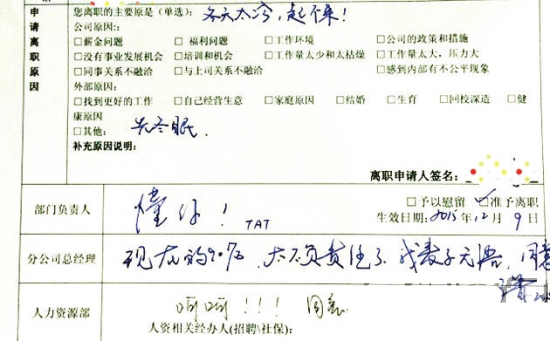 申请离职原因
您离职的主要原是(单选): 冬天太冷,起不来!
公司原因□:
□薪金问题 □ 福利问题 □工作环境 □公司的政策和措施
□没有事业发展机会 □培训和机会 □工作量太少和太枯燥 □工作量太大,压力大
□同事关系不融洽 □与上司关系不融洽 □感到内部有不公平现象
外部原因:
□找到更好的工作 □自己经营生意 □家庭原因 □结婚 □生育 □回校深造 □健
康原因
□其他: 先冬眠.
补充原因说明:
离职申请人签名:
部门负责人 懂你! TAT
□予以慰留 ☑准予离职
生效日期: 2015年12月9日
分公司总经理 现在的90后,太不负责任了,我表示无语,同意
人力资源部 呵呵!!! 同意
人资相关经办人(招聘\社保):